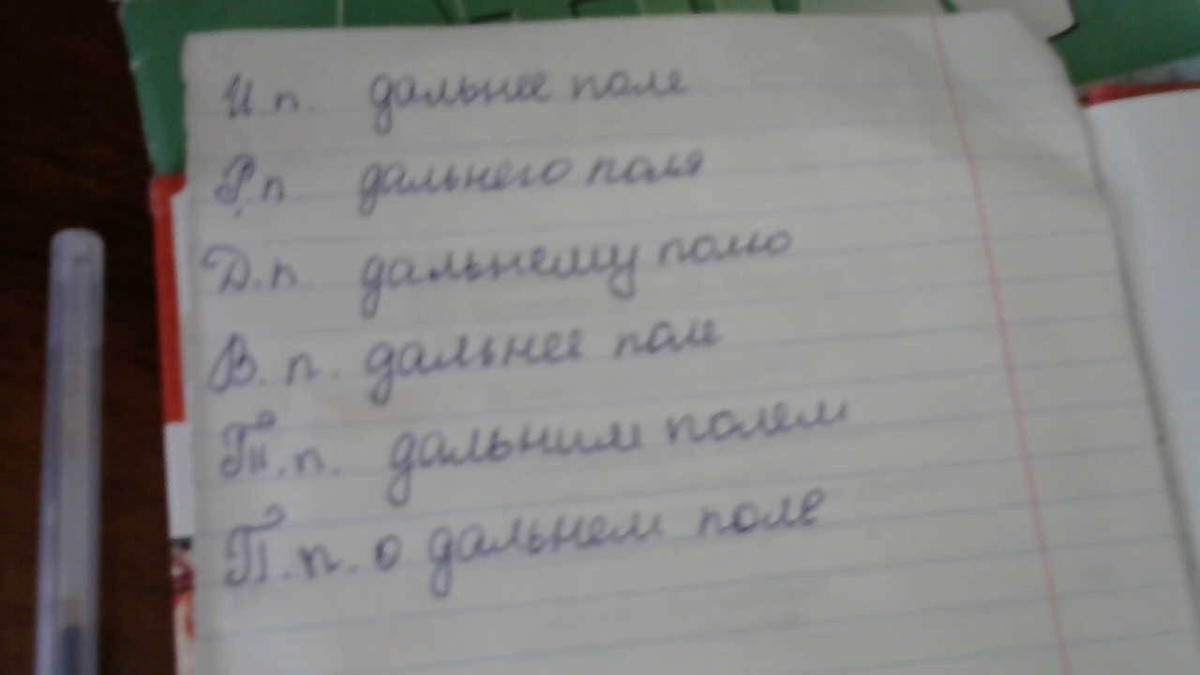 И.п. дальнее поле
Р.п. дальнего поля
Д.п. дальнему полю
В.п. дальнее поле
Т.п. дальним полем
П.п. о дальнем поле